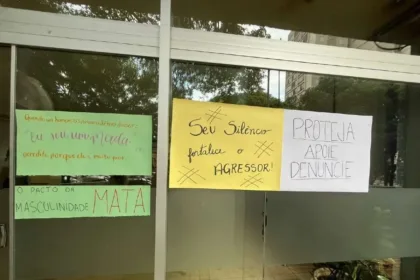 EU SOU UMA MERDA
O PACTO DA
MASCULINIDADE MATA
Seu Silêncio
fortalece o
AGRESSOR!
PROTEJA
APOIE
DENUNCIE